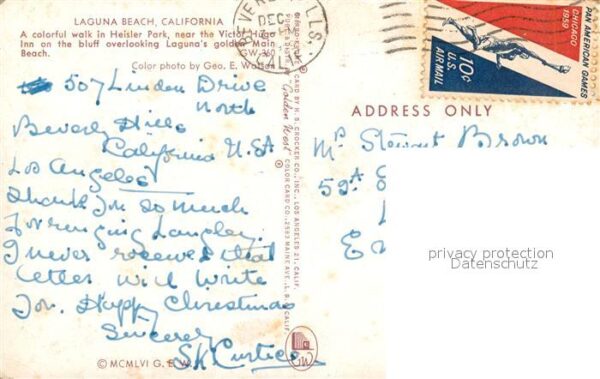 LAGUNA BEACH, CALIFORNIA
A colorful walk in Heisler Park, near the Victor Hugo
Inn on the bluff overlooking Laguna's golden Main
Beach. GW-360
Color photo by Geo. E. Watson
507 Linden Drive
North
Beverly Hills
California U.S.A
Los Angeles
Thank you so much
for ringing Langley.
I never received that
letter will write
you. Happy Christmas
Sincerely
© MCMLVI G. E. W.
BEVERLY HILLS,
DEC
CARD BY H. S. CROCKER CO. INC., LOS ANGELES 21, CALIF.
Golden West
COLOR CARD CO., 2593 MAINE AVE., L. B. CALIF
GW
PAN AMERICAN GAMES
CHICAGO
1959
10¢
U.S.
AIR MAIL
ADDRESS ONLY
Mr Stewart Brown
59A
privacy protection
Datenschutz